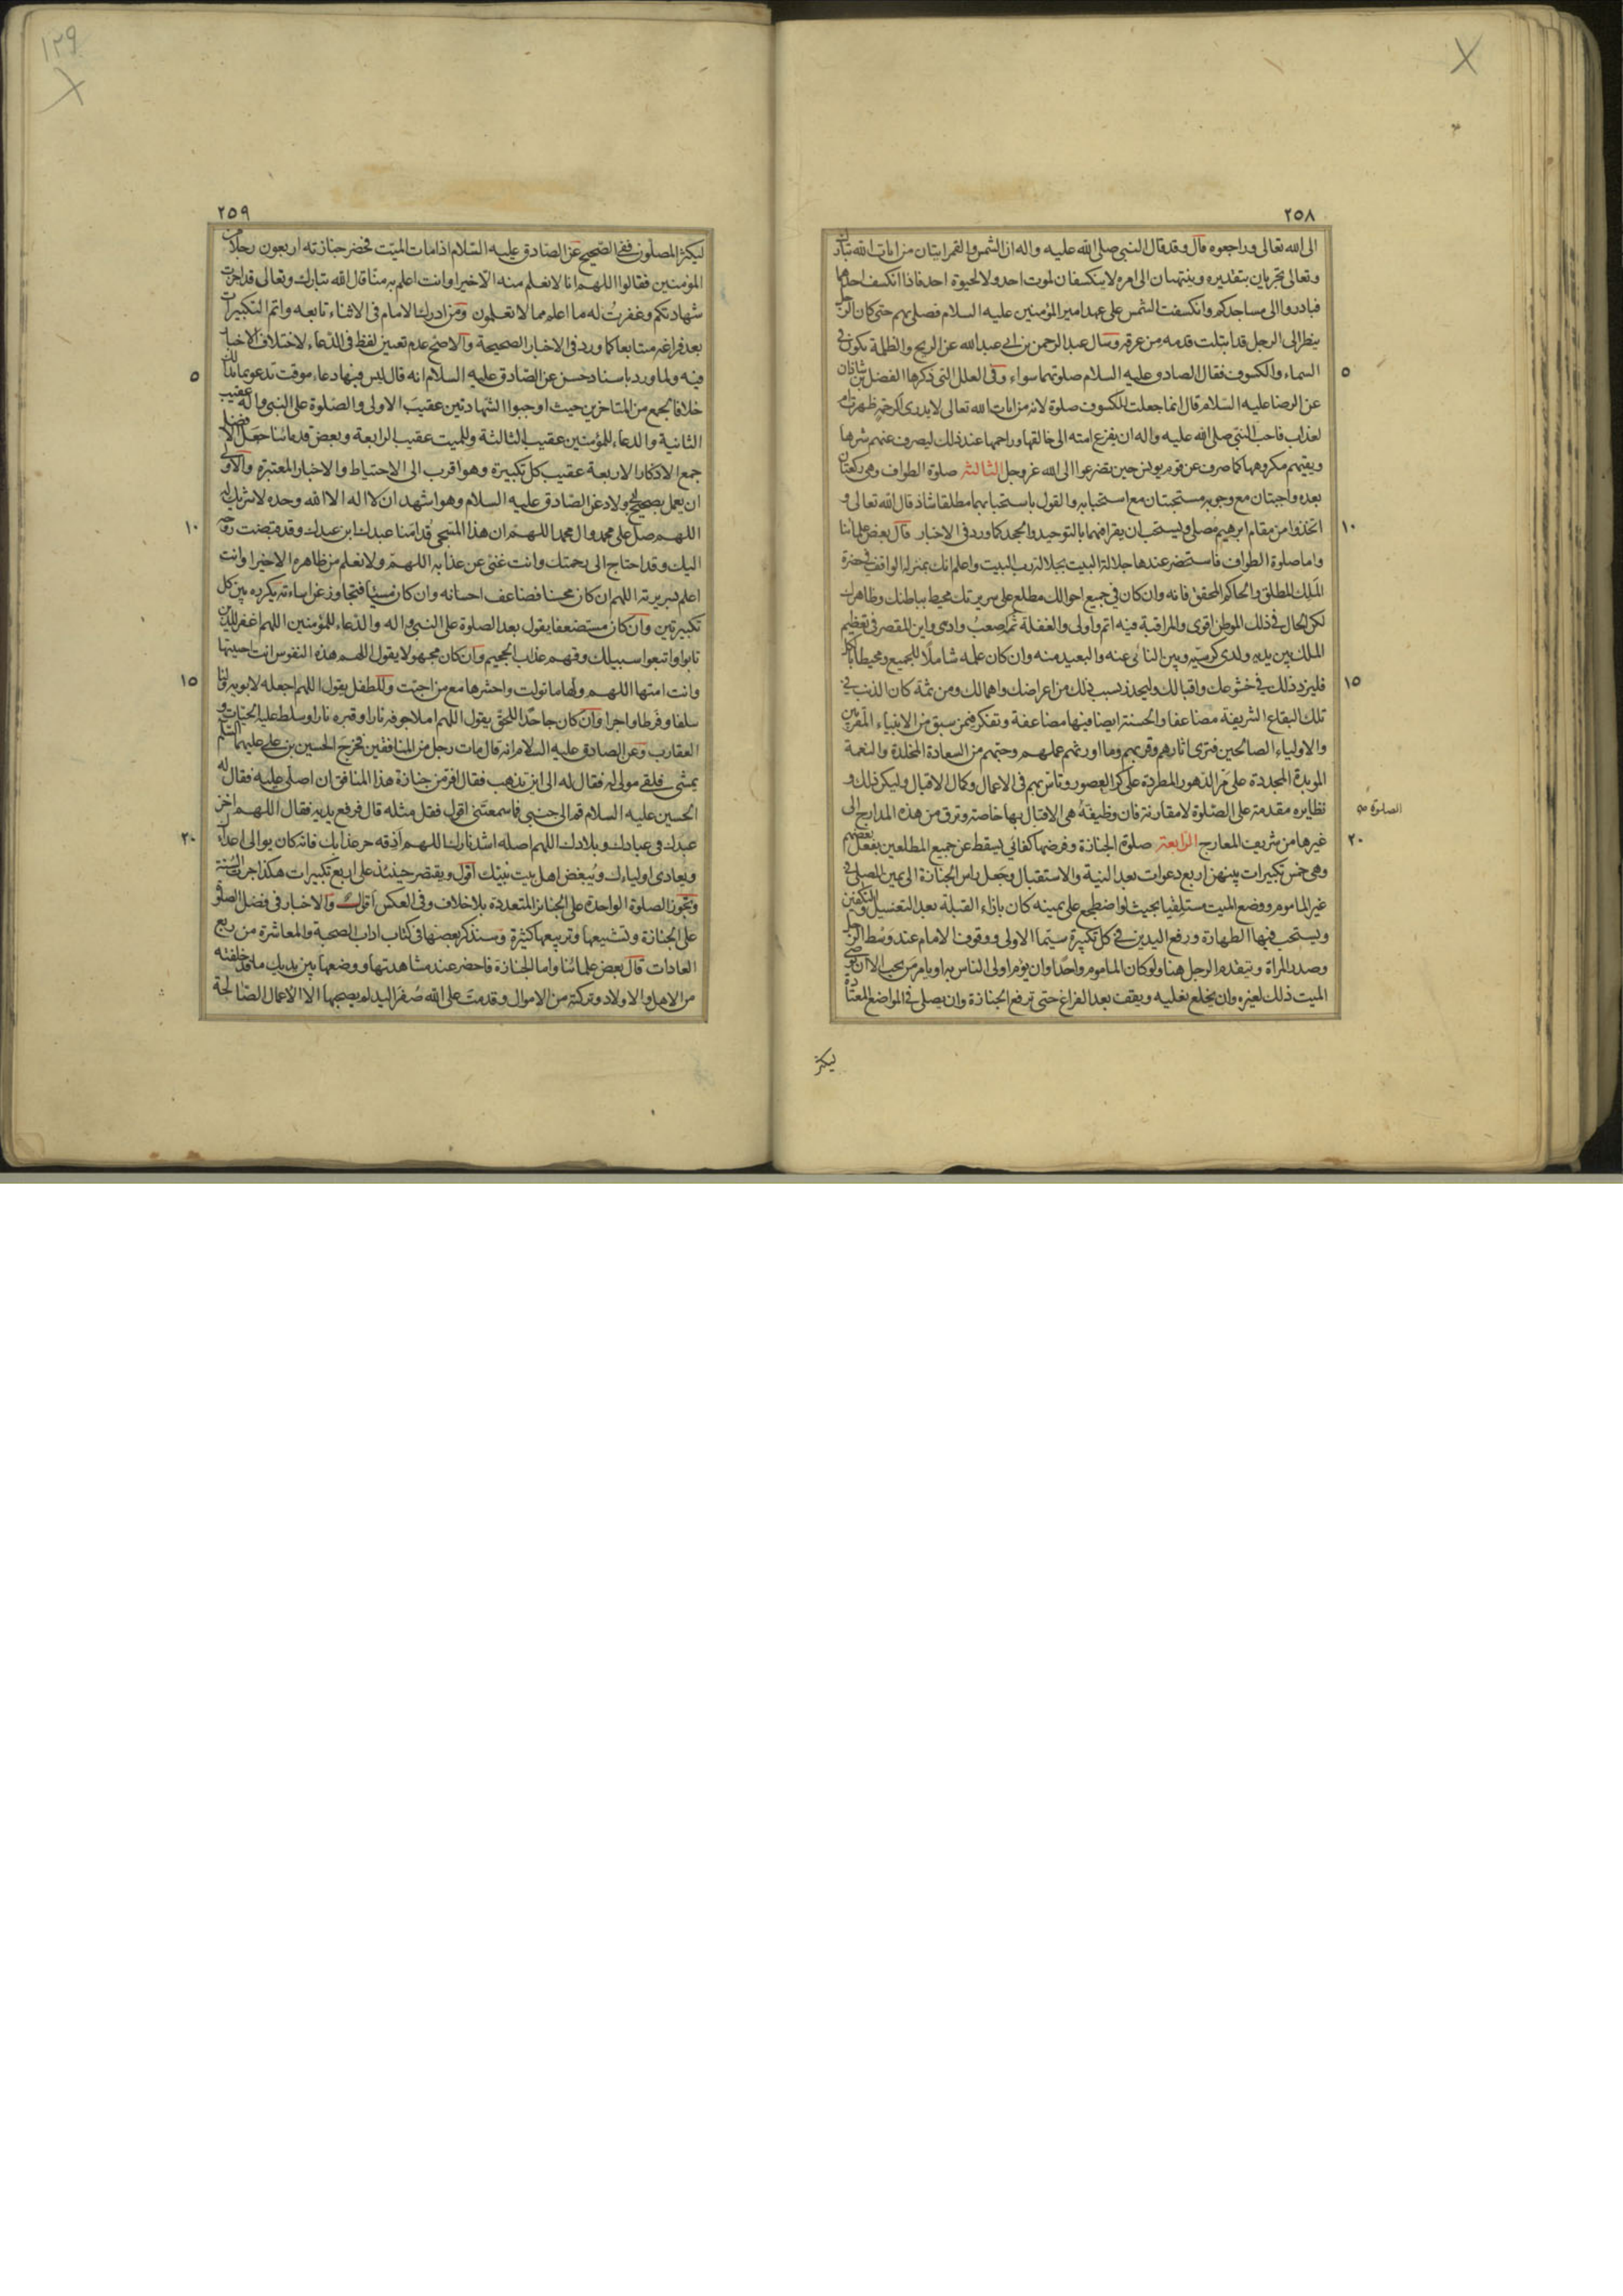 ٢٥٨
الى الله تعالى وراجعوه قال وقد قال النبي صلى الله عليه واله ان الشمس والقمر ايتان من ايات الله تبارك
وتعالى تجريان بتقديره وينتهيان الى امره لا ينكسفان لموت احد ولا لحيوة احد فاذا انكسف احدهما
فبادروا الى مساجدكم وانكسفت الشمس على عهد امير المؤمنين عليه السلام فصلى بهم حتى كان الرجل
ينظر الى الرجل قد ابتلت قدمه من عرقه وسأل عبد الرحمن بن ابي عبد الله عن الريح والظلمة تكون في
السماء والكسوف فقال الصادق عليه السلام صلوتهما سواء وفى العلل التي ذكرها الفضل بن شاذان
٥
عن الرضا عليه السلام قال انما جعلت للكسوف صلوة لانه من ايات الله تعالى لا يدرى الرحمة ظهرت ام
لعذاب فاحب النبي صلى الله عليه واله ان يفزع امته الى خالقها وراحمها عند ذلك ليصرف عنهم شرها
ويقيهم مكروهها كما صرف عن قوم يونس حين تضرعوا الى الله عز وجل الثالثة صلوة الطواف وهى ركعتان
بعده واجبتان مع وجوبه مستحبتان مع استحبابه والقول باستحبابهما مطلقا شاذ قال الله تعالى و
اتخذوا من مقام ابرهيم مصلى ويستحب ان يقرا فيهما بالتوحيد والجحد كما ورد فى الاخبار قال بعض علمائنا
١٠
واما صلوة الطواف فاستحضر عندها جلالة البيت بجلالة رب البيت واعلم انك بمنزلة الواقف فى حضرة
الملك المطلق والحاكم المحقق فانه وان كان فى جميع احوالك مطلع على سريرتك محيط بباطنك وظاهرك
لكن الحال فى ذلك الموطن اقوى والمراقبة فيه اتم واولى والغفلة ثم اصعب وادهى واين المقصر فى تعظيم
الملك بين يديه ولدى كرسيه وبين النائى عنه والبعيد منه وان كان علمه شاملا للجميع ومحيطا بالكل
فليزد ذلك فى خشوعك واقبالك وليحذر بسبب ذلك من اعراضك واهمالك ومن ثمة كان الذنب فى
١٥
تلك البقاع الشريفة مضاعفا والحسنة ايضا فيها مضاعفة وتفكر فيمن سبق من الانبياء المقربين
والاولياء الصالحين فترى اثارهم وقربهم وما اورثهم عملهم وحبهم من السعادة المخلدة والنعمة
المؤبدة المجددة على مر الدهور المطردة على كر العصور وتاس بهم فى الاعمال وكمال الاقبال وليكن ذلك و
نظايره مقدمة على الصلوة لا مقارنة فان وظيفة هى الاقبال بها خاصة وترق من هذه المدارج الى
الصلوة صح
غيرها من شريف المعارج الرابعة صلوة الجنازة وفرضها كفائي يسقط عن جميع المطلعين بفعل بعضهم
٢٠
وهى خمس تكبيرات بينهن اربع دعوات بعد النية والاستقبال وجعل راس الجنازة الى يمين المصلى فى
غير الماموم ووضع الميت مستلقيا بحيث لو اضطجع على يمينه كان بازاء القبلة بعد التغسيل والتكفين
ويستحب فيها الطهارة ورفع اليدين فى كل تكبيرة سيما الاولى ووقوف الامام عند وسط الرجل
وصدر المراة ويتقدم الرجل هنا ولو كان الماموم واحدا وان يؤم اولى الناس به او يامر من يحب الا ان يوصى
الميت ذلك لغيره وان يخلع نعليه ويقف بعد الفراغ حتى ترفع الجنازة وان يصلى فى المواضع المعتادة
ليكثر
١٢٩
٢٥٩
ليكثر المصلون ففى الصحيح عن الصادق عليه السلام اذا مات الميت فحضر جنازته اربعون رجلا من
المؤمنين فقالوا اللهم انا لا نعلم منه الا خيرا وانت اعلم به منا قال الله تبارك وتعالى قد اجزت
شهادتكم وغفرت له ما اعلم مما لا تعلمون ومن ادرك الامام فى الاثناء تابعه واتم التكبيرات
بعد فراغه متتابعا كما ورد فى الاخبار الصحيحة والاصح عدم تعيين لفظ فى الدعاء لاختلاف الاخبار
فيه ولما ورد باسناد حسن عن الصادق عليه السلام انه قال ليس فيها دعاء موقت تدعو بما بدا لك
٥
خلافا لجمع من المتاخرين حيث اوجبوا الشهادتين عقيب الاولى والصلوة على النبي واله عقيب
الثانية والدعاء للمؤمنين عقيب الثالثة وللميت عقيب الرابعة وبعض قدمائنا جعل الافضل
جمع الاذكار الاربعة عقيب كل تكبيرة وهو اقرب الى الاحتياط والاخبار المعتبرة والاولى
ان يعمل بصحيح ولاد عن الصادق عليه السلام وهو اشهد ان لا اله الا الله وحده لا شريك له
اللهم صل على محمد وال محمد اللهم ان هذا المسجى قدامنا عبدك ابن عبدك وقد قبضت روحه
١٠
اليك وقد احتاج الى رحمتك وانت غنى عن عذابه اللهم ولا نعلم من ظاهره الا خيرا وانت
اعلم بسريرته اللهم ان كان محسنا فضاعف احسانه وان كان مسيئا فتجاوز عن اساءته يكرره بين كل
تكبيرتين وان كان مستضعفا يقول بعد الصلوة على النبي واله والدعاء للمؤمنين اللهم اغفر للذين
تابوا واتبعوا سبيلك وقهم عذاب الجحيم وان كان مجهولا يقول اللهم هذه النفوس انت احييتها
وانت امتها اللهم ولها ما تولت واحشرها مع من احبت وللطفل يقول اللهم اجعله لابويه ولنا
١٥
سلفا وفرطا واجرا وان كان جاحدا للحق يقول اللهم املا جوفه نارا وقبره نارا وسلط عليه الحيات و
العقارب وعن الصادق عليه السلام انه قال مات رجل من المنافقين فخرج الحسين بن على عليهما السلم
يمشى فلقى مولى له فقال له الى اين تذهب فقال افر من جنازة هذا المنافق ان اصلى عليه فقال له
الحسين عليه السلام قم الى جنبى فما سمعتنى اقول فقل مثله قال فرفع يديه فقال اللهم اخز
عبدك فى عبادك وبلادك اللهم اصله اشد نارك اللهم اذقه حر عذابك فانه كان يوالى اعداءك
٢٠
ويعادى اولياءك ويبغض اهل بيت نبيك اقول ويقتصر حينئذ على اربع تكبيرات هكذا جرت السنة
وتجوز الصلوة الواحدة على الجنائز المتعددة بلا خلاف وفى العكس اقوال والاخبار فى فضل الصلوة
على الجنازة وتشييعها وتربيعها كثيرة وسنذكر بعضها فى كتاب اداب الصحبة والمعاشرة من ربع
العادات قال بعض علمائنا واما الجنازة فاحضر عند مشاهدتها ووضعها بين يديك ما قد خلفته
من الاهل والاولاد وتركته من الاموال وقدمت على الله صفر اليد لم يصحبها الا الاعمال الصالحة